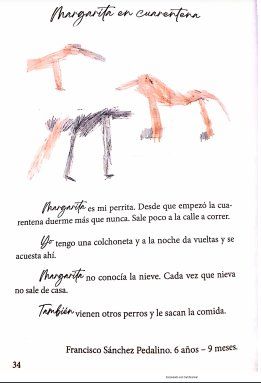 Margarita en cuarentena
Margarita es mi perrita. Desde que empezó la cua-
rentena duerme más que nunca. Sale poco a la calle a correr.
Yo tengo una colchoneta y a la noche da vueltas y se
acuesta ahí.
Margarita no conocía la nieve. Cada vez que nieva
no sale de casa.
También vienen otros perros y le sacan la comida.
Francisco Sánchez Pedalino. 6 años – 9 meses.
34